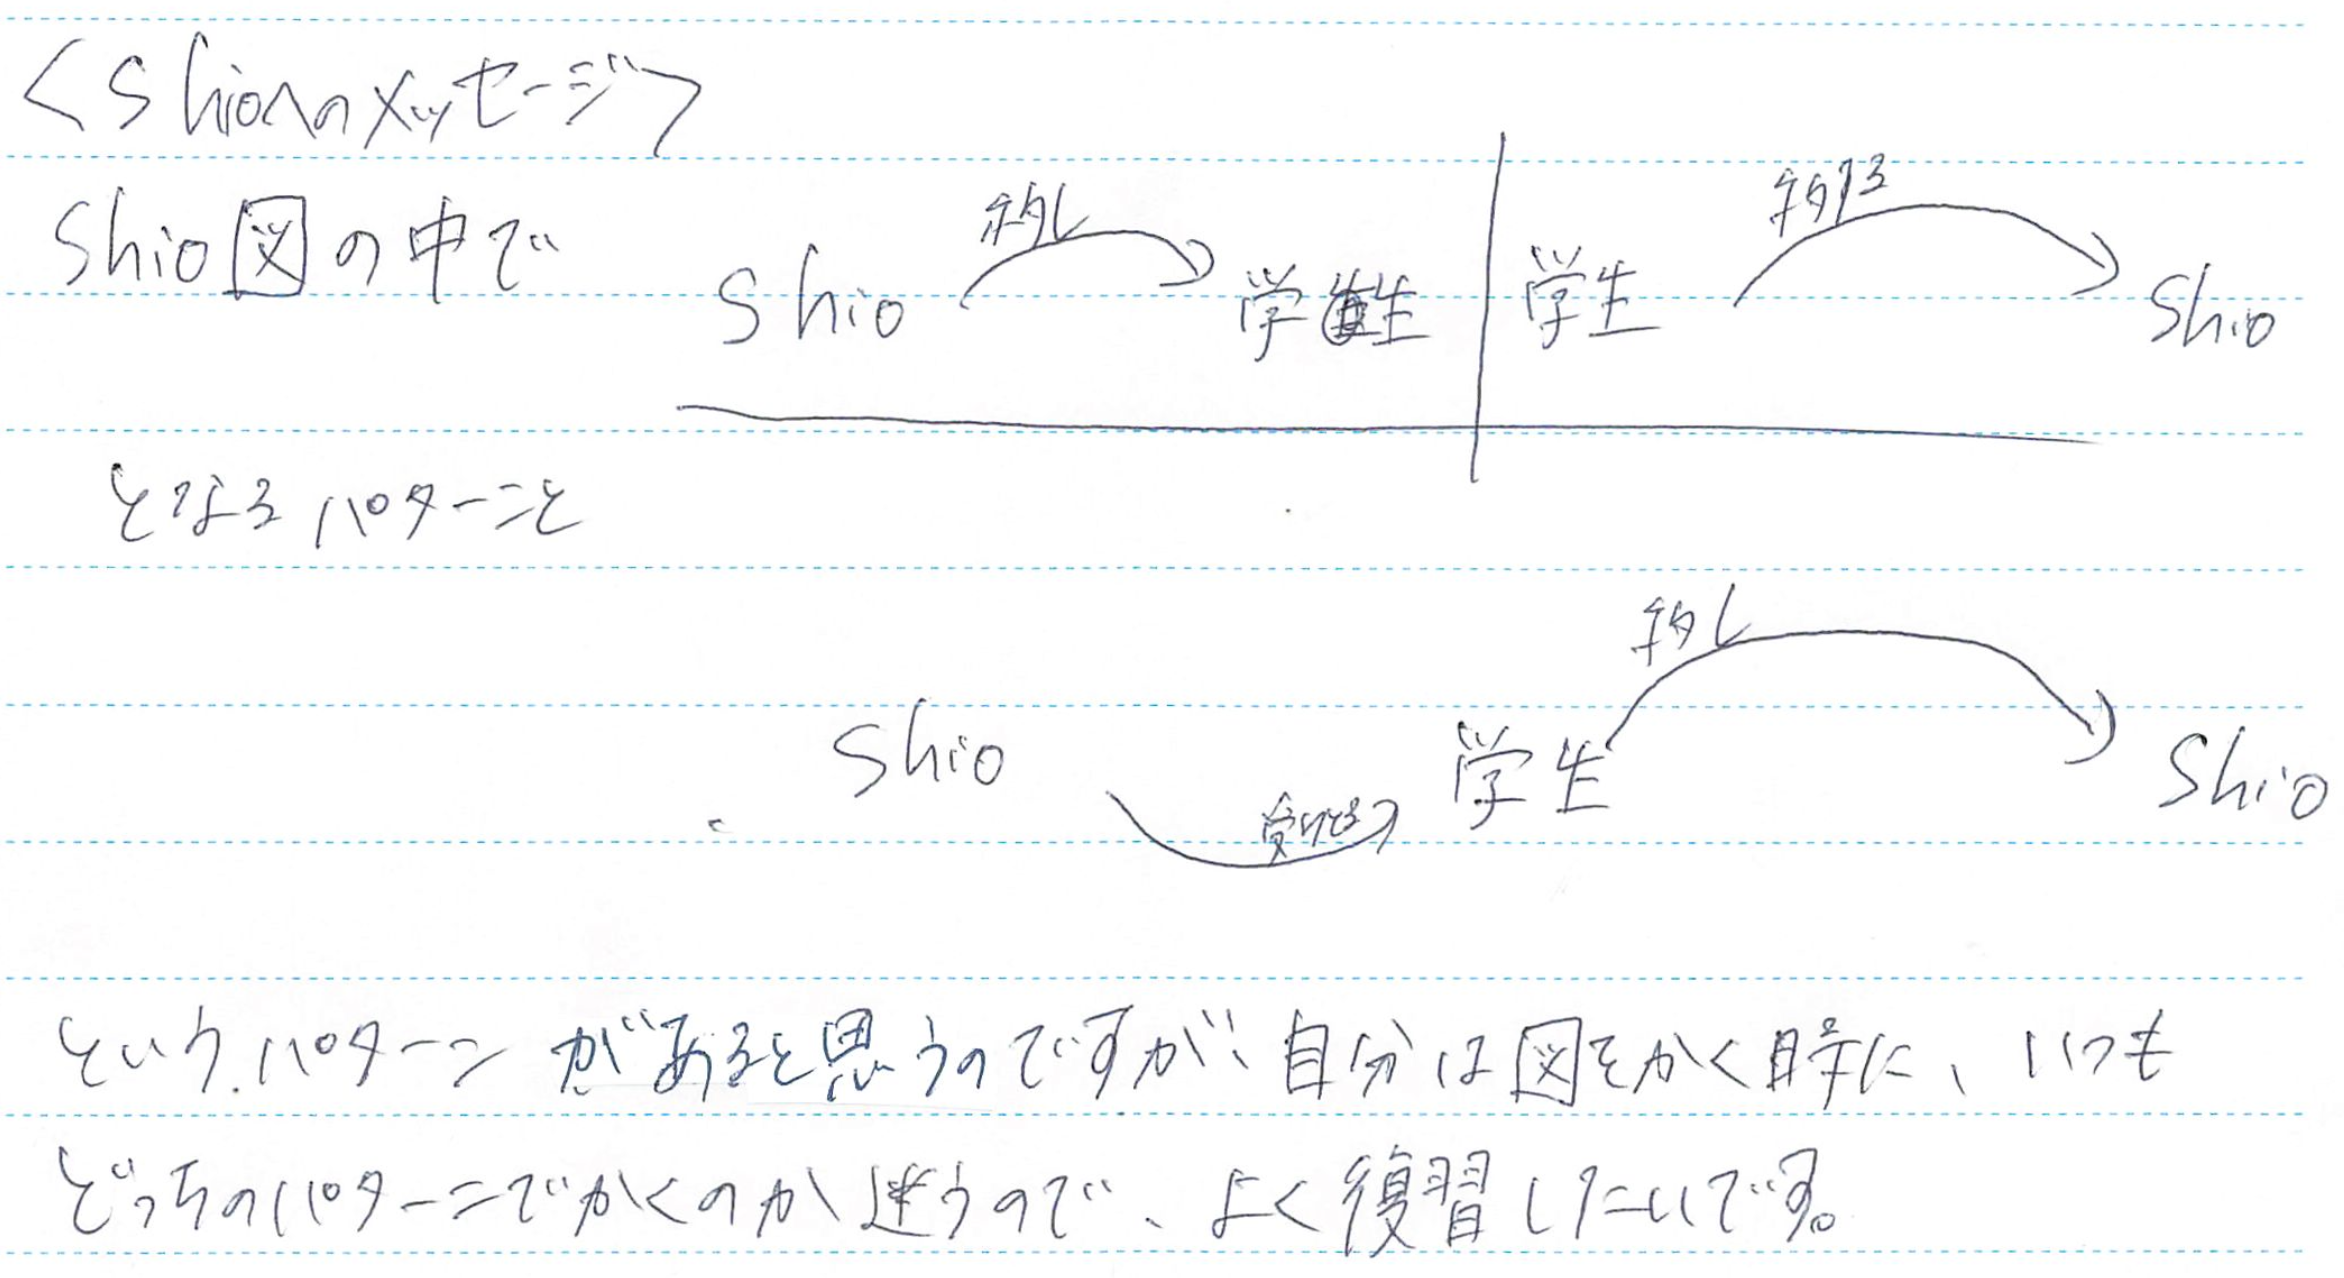 <Shioへのメッセージ>
Shio図の中で
移し
Shio 学生
移る
学生 Shio
となるパターンと
移し
Shio 学生 Shio
受ける
というパターンがあると思うのですが、自分は図をかく時に、いつも
どっちのパターンでかくのか迷うので、よく復習したいです。